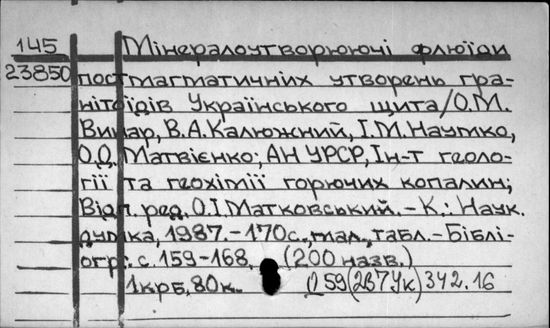 145 Мінералоутворюючі флюїди
23850 постмагматичних утворень гра-
нітоїдів Українського щита/О.М.
Винар, В.А.Калюжний, І.М.Наумко,
О.Д. Матвієнко; АН УРСР, Ін-т геоло-
гії та геохімії горючих копалин;
Відп. ред. О.І.Матковський. - К.: Наук.
думка, 1987. - 170с., мал., табл. - Біблі-
огр.: с. 159-168. (200 назв.)
1крб. 80к. Д 59(2В7Ук)342.16